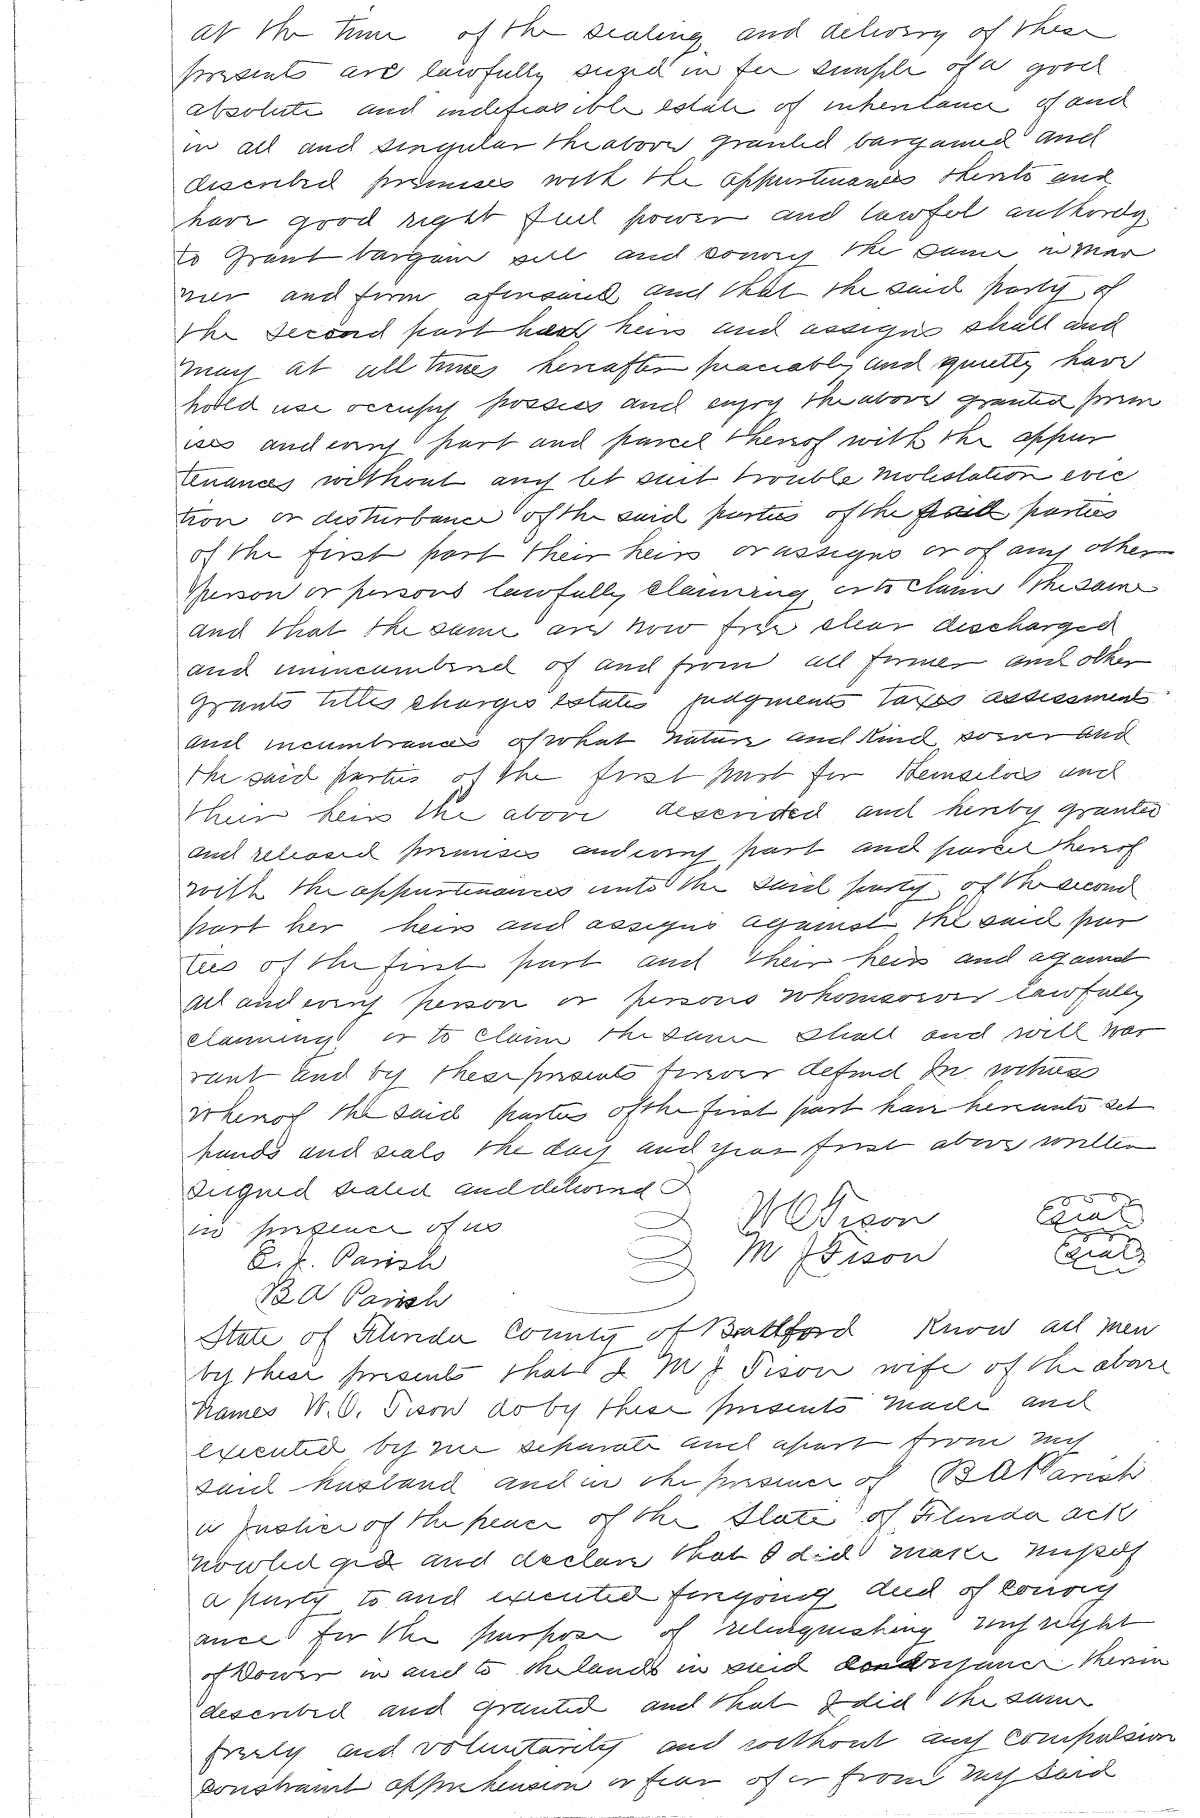 at the time of the sealing and delivery of these
presents are lawfully seized in fee simple of a good
absolute and indefeasible estate of inheritance of and
in all and singular the above granted bargained and
described premises with the appurtenances thereto and
have good right full power and lawful authority
to Grant bargain sell and convey the same in man
ner and form aforesaid and that the said party of
the second part her heirs and assigns shall and
may at all times hereafter peaceably and quietly have
hold use occupy possess and enjoy the above granted prem
ises and every part and parcel thereof with the appur
tenances without any let suit trouble molestation evic
tion or disturbance of the said parties of the said parties
of the first part their heirs or assigns or of any other
person or persons lawfully claiming or to claim the same
and that the same are now free clear discharged
and unincumbered of and from all former and other
grants titles charges estates judgments taxes assessments
and incumbrances of what nature and kind soever and
the said parties of the first part for themselves and
their heirs the above described and hereby granted
and released premises and every part and parcel thereof
with the appurtenances unto the said party of the second
part her heirs and assigns against the said par
ties of the first part and their heirs and against
all and every person or persons whomsoever lawfully
claiming or to claim the same shall and will war
rant and by these presents forever defend In witness
whereof the said parties of the first part have hereunto set
hands and seals the day and year first above written
Signed sealed and delivered
in presence of us W C Tison Seal
E. J. Parish M J Tison Seal
B A Parish
State of Florida County of Bradford Know all men
by these presents that I M J Tison wife of the above
names W. C. Tison do by these presents made and
executed by me separate and apart from my
said husband and in the presence of B A Parish
a Justice of the peace of the State of Florida ack
nowledged and declare that I did make myself
a party to and executed foregoing deed of convey
ance for the purpose of relinquishing my right
of Dower in and to the lands in said conveyance therein
described and granted and that I did the same
freely and voluntarily and without any compulsion
constraint apprehension or fear of or from my said